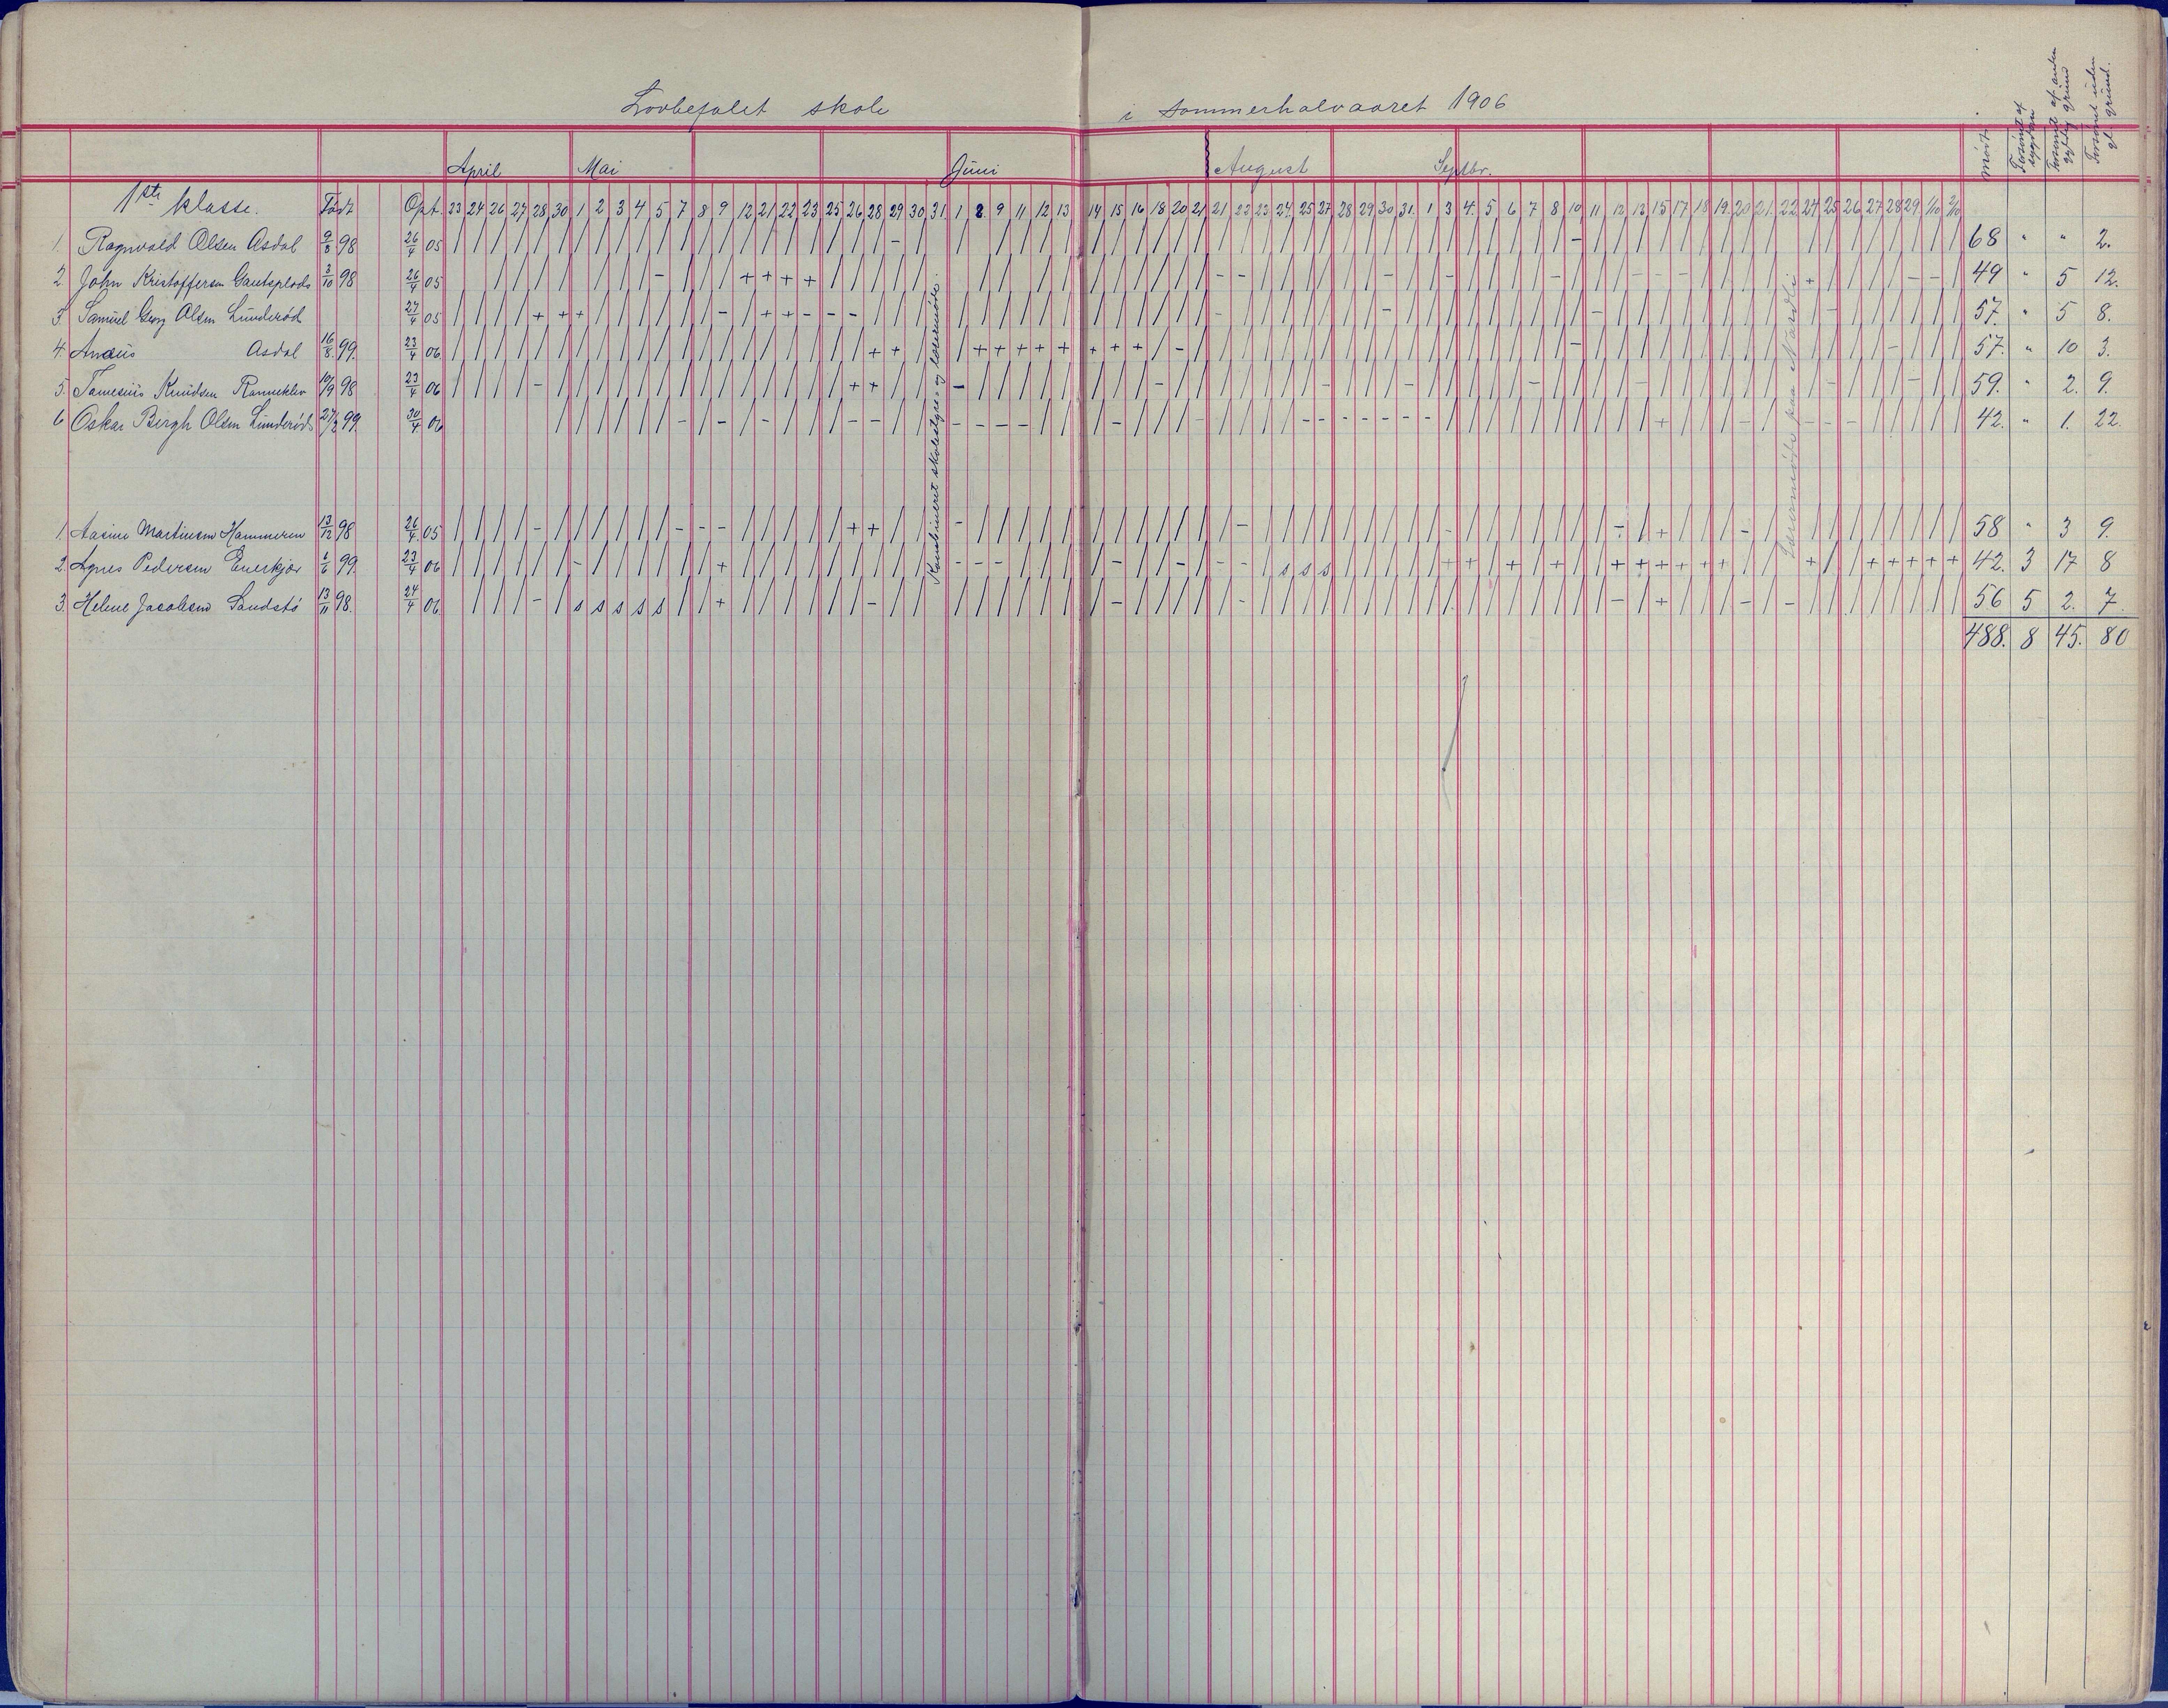 Lovbefalet skole i sommerhalvaaret 1906
April Mai Juni August Septbr. Mødt. Forsømt af sygdom Forsømt af anden gyldig grund Forsømt uden gl. grund.
1ste klasse. Født Opt. 23 24 26 27 28 30 1 2 3 4 5 7 8 9 12 21 22 23 25 26 28 29 30 31 1 8 9 11 12 13 14 15 16 18 20 21 21 22 23 24 25 27 28 29 30 31. 1 3 4. 5 6 7 8 10 11 12 13 15 17 18 19. 20 21. 22 24 25 26 27 28 29. 1/10 2/10
1. Ragnvald Olsen Asdal 9/8 98 26/4 05 68 " " 2.
2. John Kristoffersen Gauteplads 3/10 98 26/4 05 49 " 5 12.
3 Samuel Georg Olsen Lunderød 27/4 05 57. " 5 8.
4. Asdal 16/8 99. 23/4 06 57. " 10 3.
5. Knudsen Ranneklev 10/9 98 23/4 06 59. " 2. 9.
6 Oskar Bergh Olsen Lunderød 27/2 99. 30/4 06 42. " 1. 22.
Kombineret skolestyre- og lærermøde.
Lærermøde paa
1. Aasine Martinsen Hammeren 13/12 98 26/4 05 58 " 3 9.
2. Agnes Pedersen Enerkjær 1/6 99. 23/4 06 s s s 42. 3 17 8
3. Helene Jacobsen Sandstø 13/11 98. 24/4 06. s s s s s 56 5 2. 7.
488. 8 45. 80